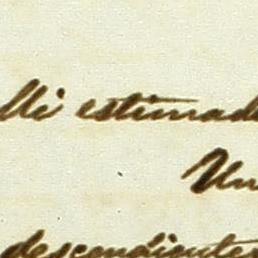 Mi estimad
Un
descendientes